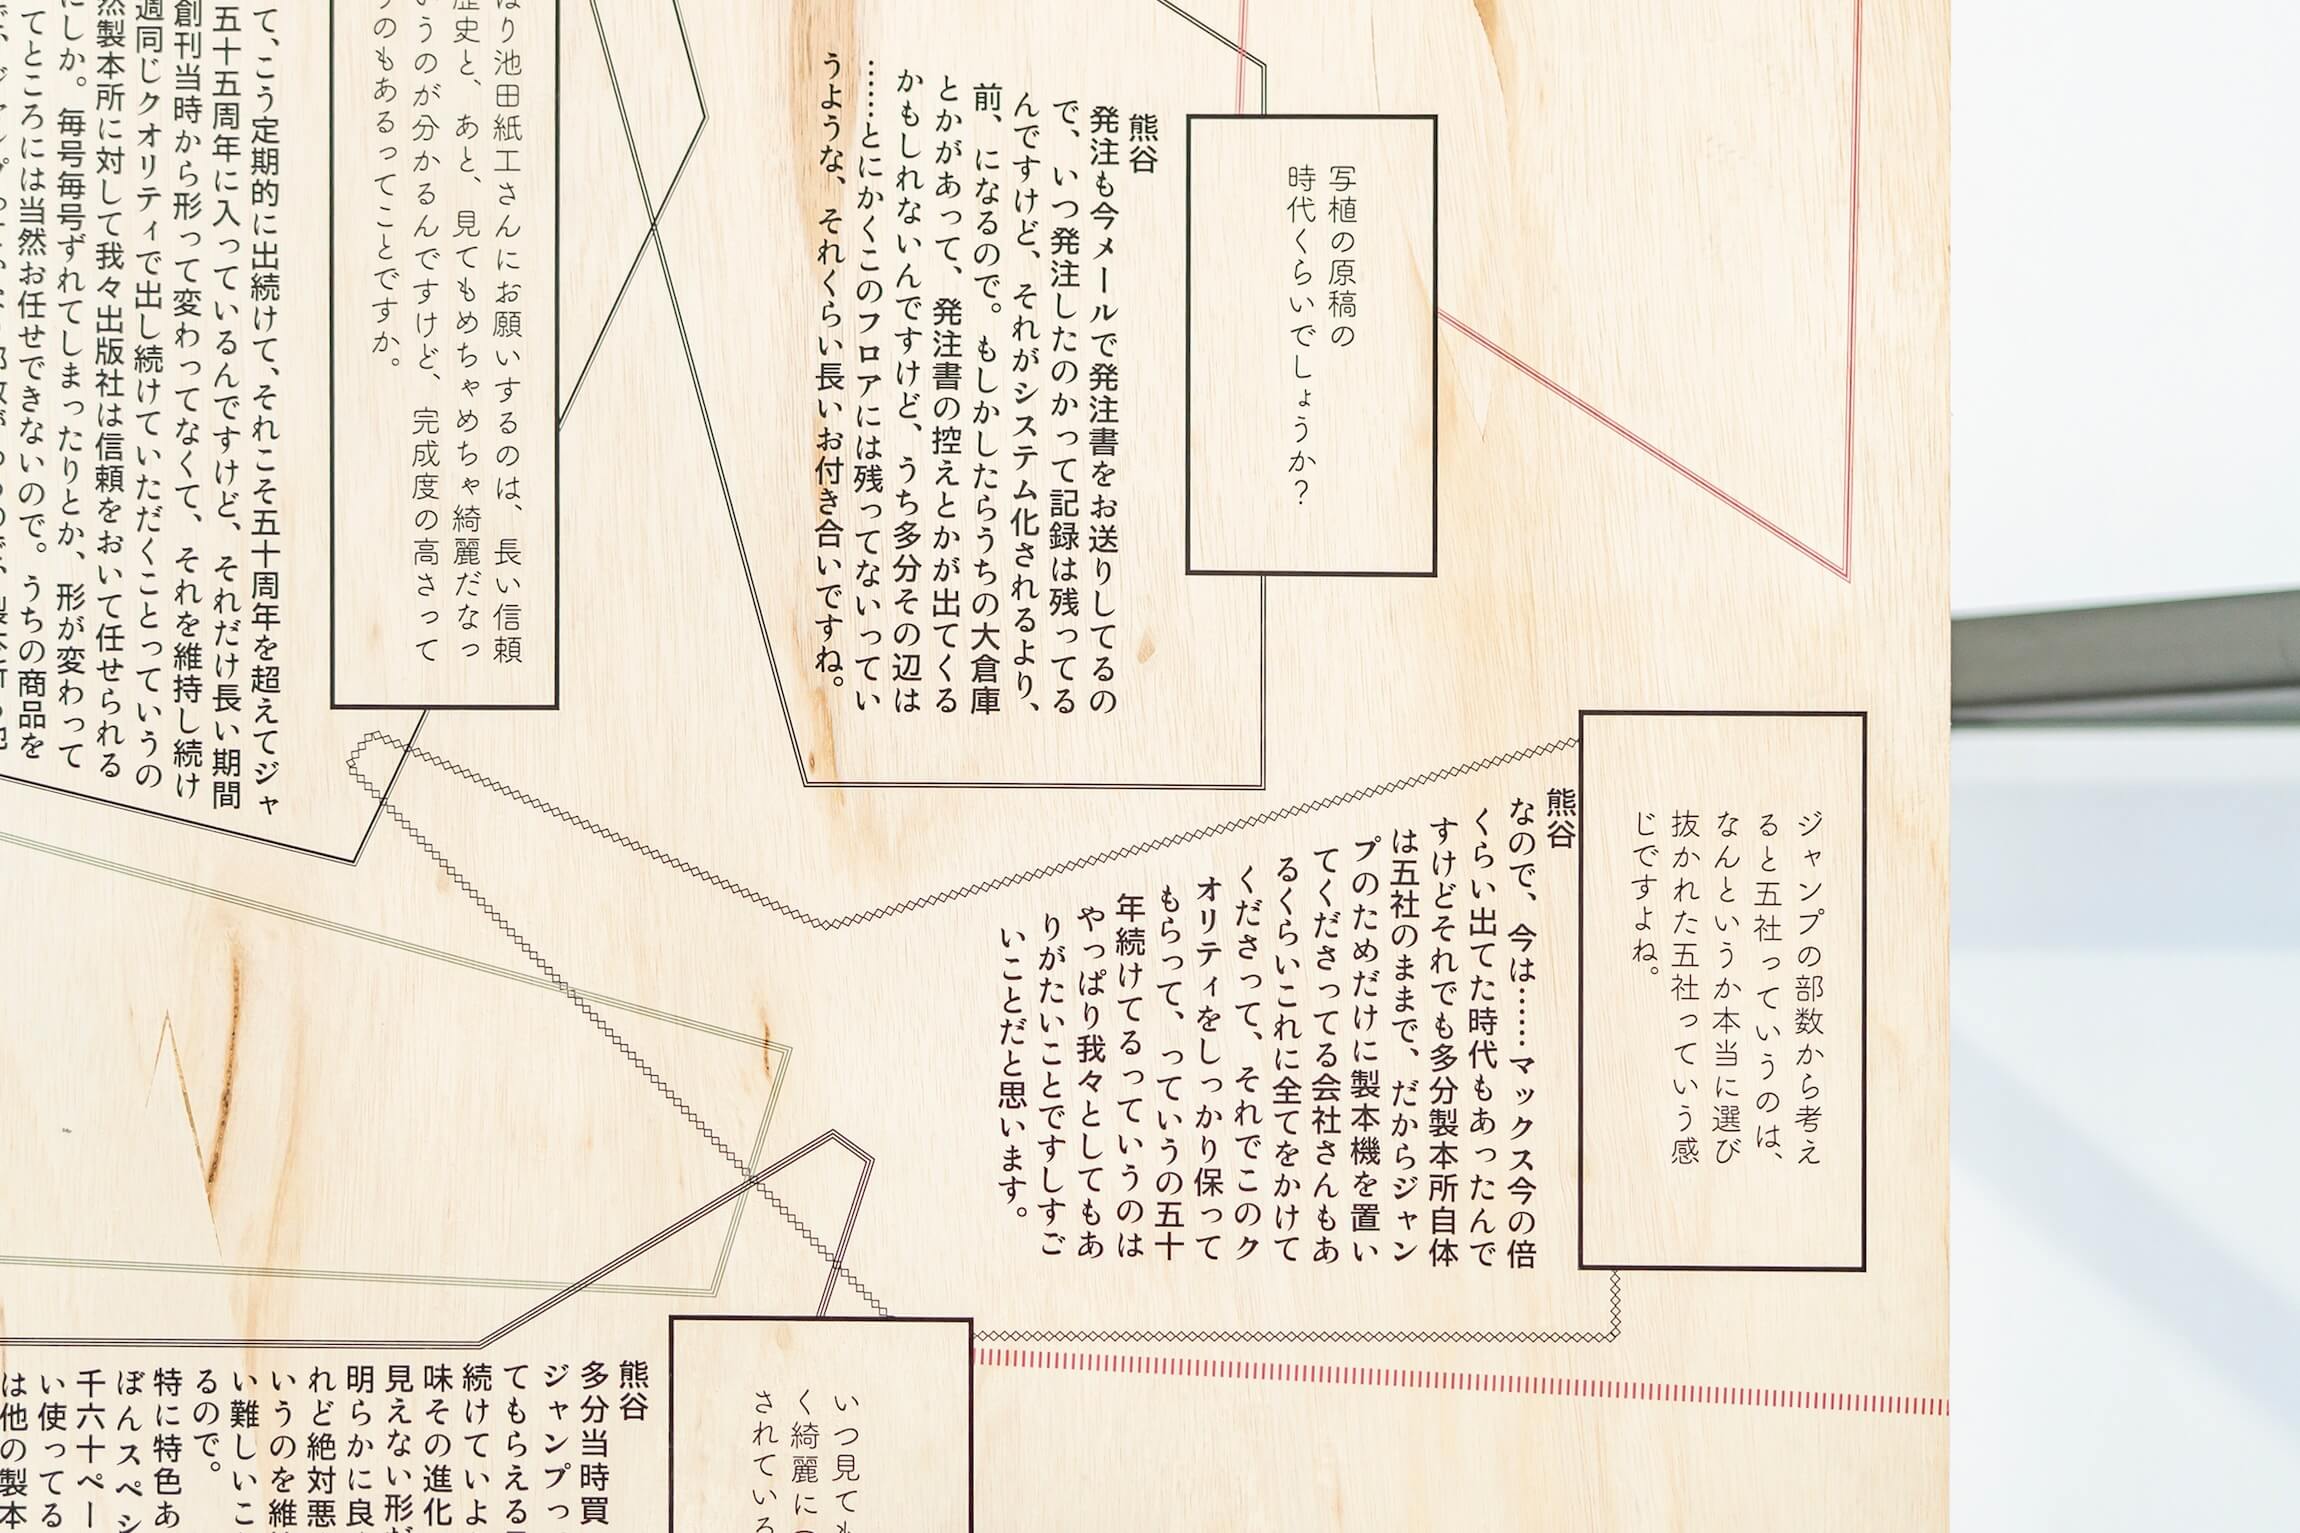 写植の原稿の
時代くらいでしょうか？
熊谷
発注も今メールで発注書をお送りしてるの
で、いつ発注したのかって記録は残ってる
んですけど、それがシステム化されるより、
前、になるので。もしかしたらうちの大倉庫
とかがあって、発注書の控えとかが出てくる
かもしれないんですけど、うち多分その辺は
……とにかくこのフロアには残ってないってい
うような、それくらい長いお付き合いですね。
ぱり池田紙工さんにお願いするのは、長い信頼
歴史と、あと、見てもめちゃめちゃ綺麗だなっ
いうのが分かるんですけど、完成度の高さって
うのもあるってことですか。
て、こう定期的に出続けて、それこそ五十周年を超えてジャ
五十五周年に入っているんですけど、それだけ長い期間
創刊当時から形って変わってなくて、それを維持し続け
週同じクオリティで出し続けていただくことっていうの
然製本所に対して我々出版社は信頼をおいて任せられる
にしか。毎号毎号ずれてしまったりとか、形が変わって
てところには当然お任せできないので。うちの商品を
ジャンプの部数から考え
ると五社っていうのは、
なんというか本当に選び
抜かれた五社っていう感
じですよね。
熊谷
なので、今は……マックス今の倍
くらい出てた時代もあったんで
すけどそれでも多分製本所自体
は五社のままで、だからジャン
プのためだけに製本機を置い
てくださってる会社さんもあ
るくらいこれに全てをかけて
くださって、それでこのク
オリティをしっかり保って
もらって、っていうの五十
年続けてるっていうのは
やっぱり我々としてもあ
りがたいことですしすご
いことだと思います。
いつ見ても
く綺麗に
されている
熊谷
多分当時買
ジャンプっ
てもらえる
続けていよ
味その進化
見えない形だ
明らかに良
れど絶対悪
いうのを維
い難しいこ
るので。
特に特色あ
ぼんスペシ
千六十ペー
い使ってる
は他の製本